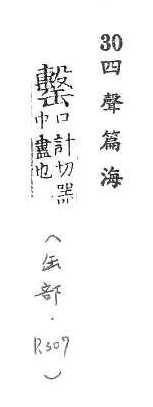 30四聲篇海
罊口計切器中盡也
(缶部.P.307)